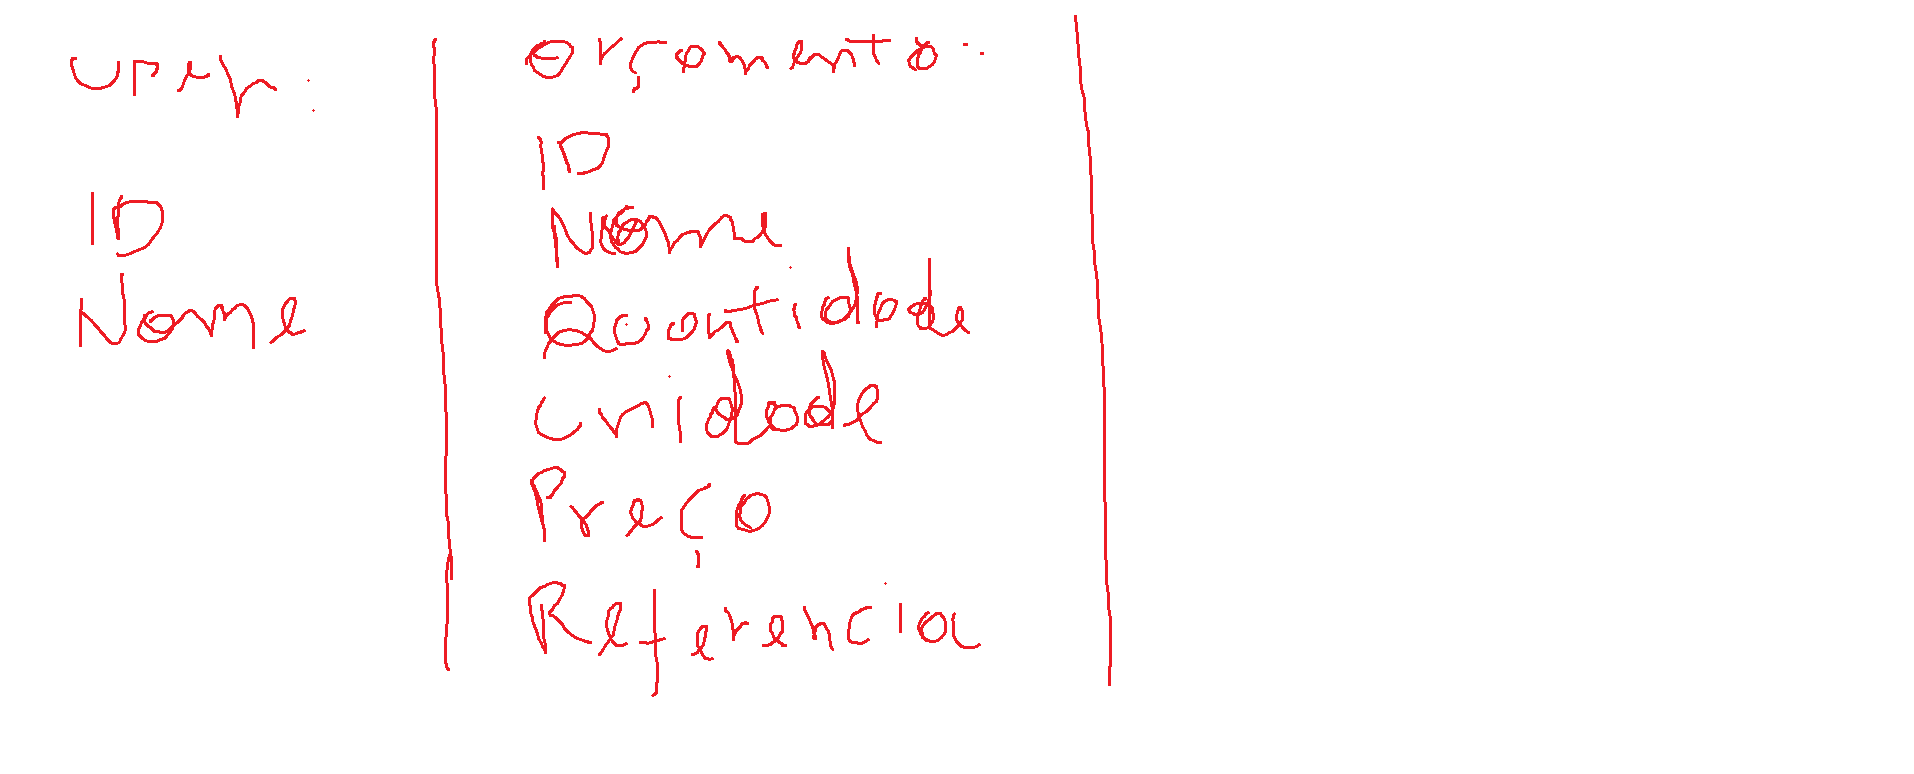 ID
Nome
Orçamento:
ID
Nome
Quantidade
Unidade
Preço
Referencia